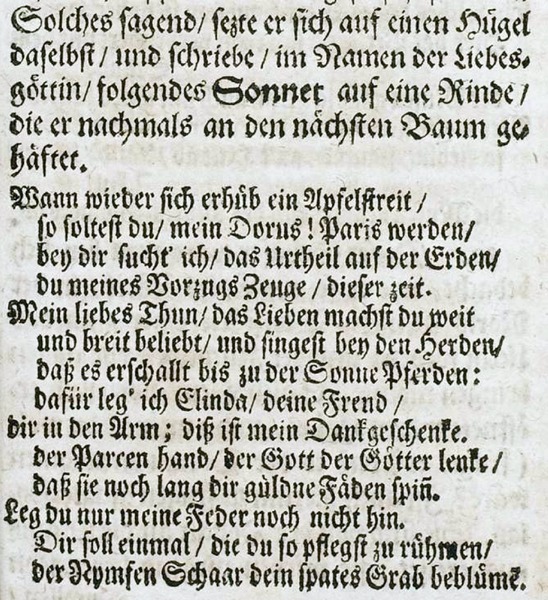 Solches sagend/ sezte er sich auf einen Hügel
daselbst/ und schriebe/ im Namen der Liebes-
göttin/ folgendes Sonnet auf eine Rinde/
die er nachmals an den nächsten Baum ge-
häftet.
Wann wieder sich erhüb ein Apfelstreit/
so soltest du/ mein Dorus! Paris werden/
bey dir sucht' ich/ das Urtheil auf der Erden/
du meines Vorzugs Zeuge/ dieser zeit.
Mein liebes Thun/ das Lieben machst du weit
und breit beliebt/ und singest bey den Herden/
daß es erschallt bis zu der Sonne Pferden:
dafür leg' ich Elinda/ deine Freud/
dir in den Arm; diß ist mein Dankgeschenke.
der Parcen hand/ der Gott der Götter lenke/
daß sie noch lang dir güldne Fäden spiñ.
Leg du nur meine Feder noch nicht hin.
Dir soll einmal/ die du so pflegst zu rühmen/
der Nymfen Schaar dein spates Grab beblüme̅.